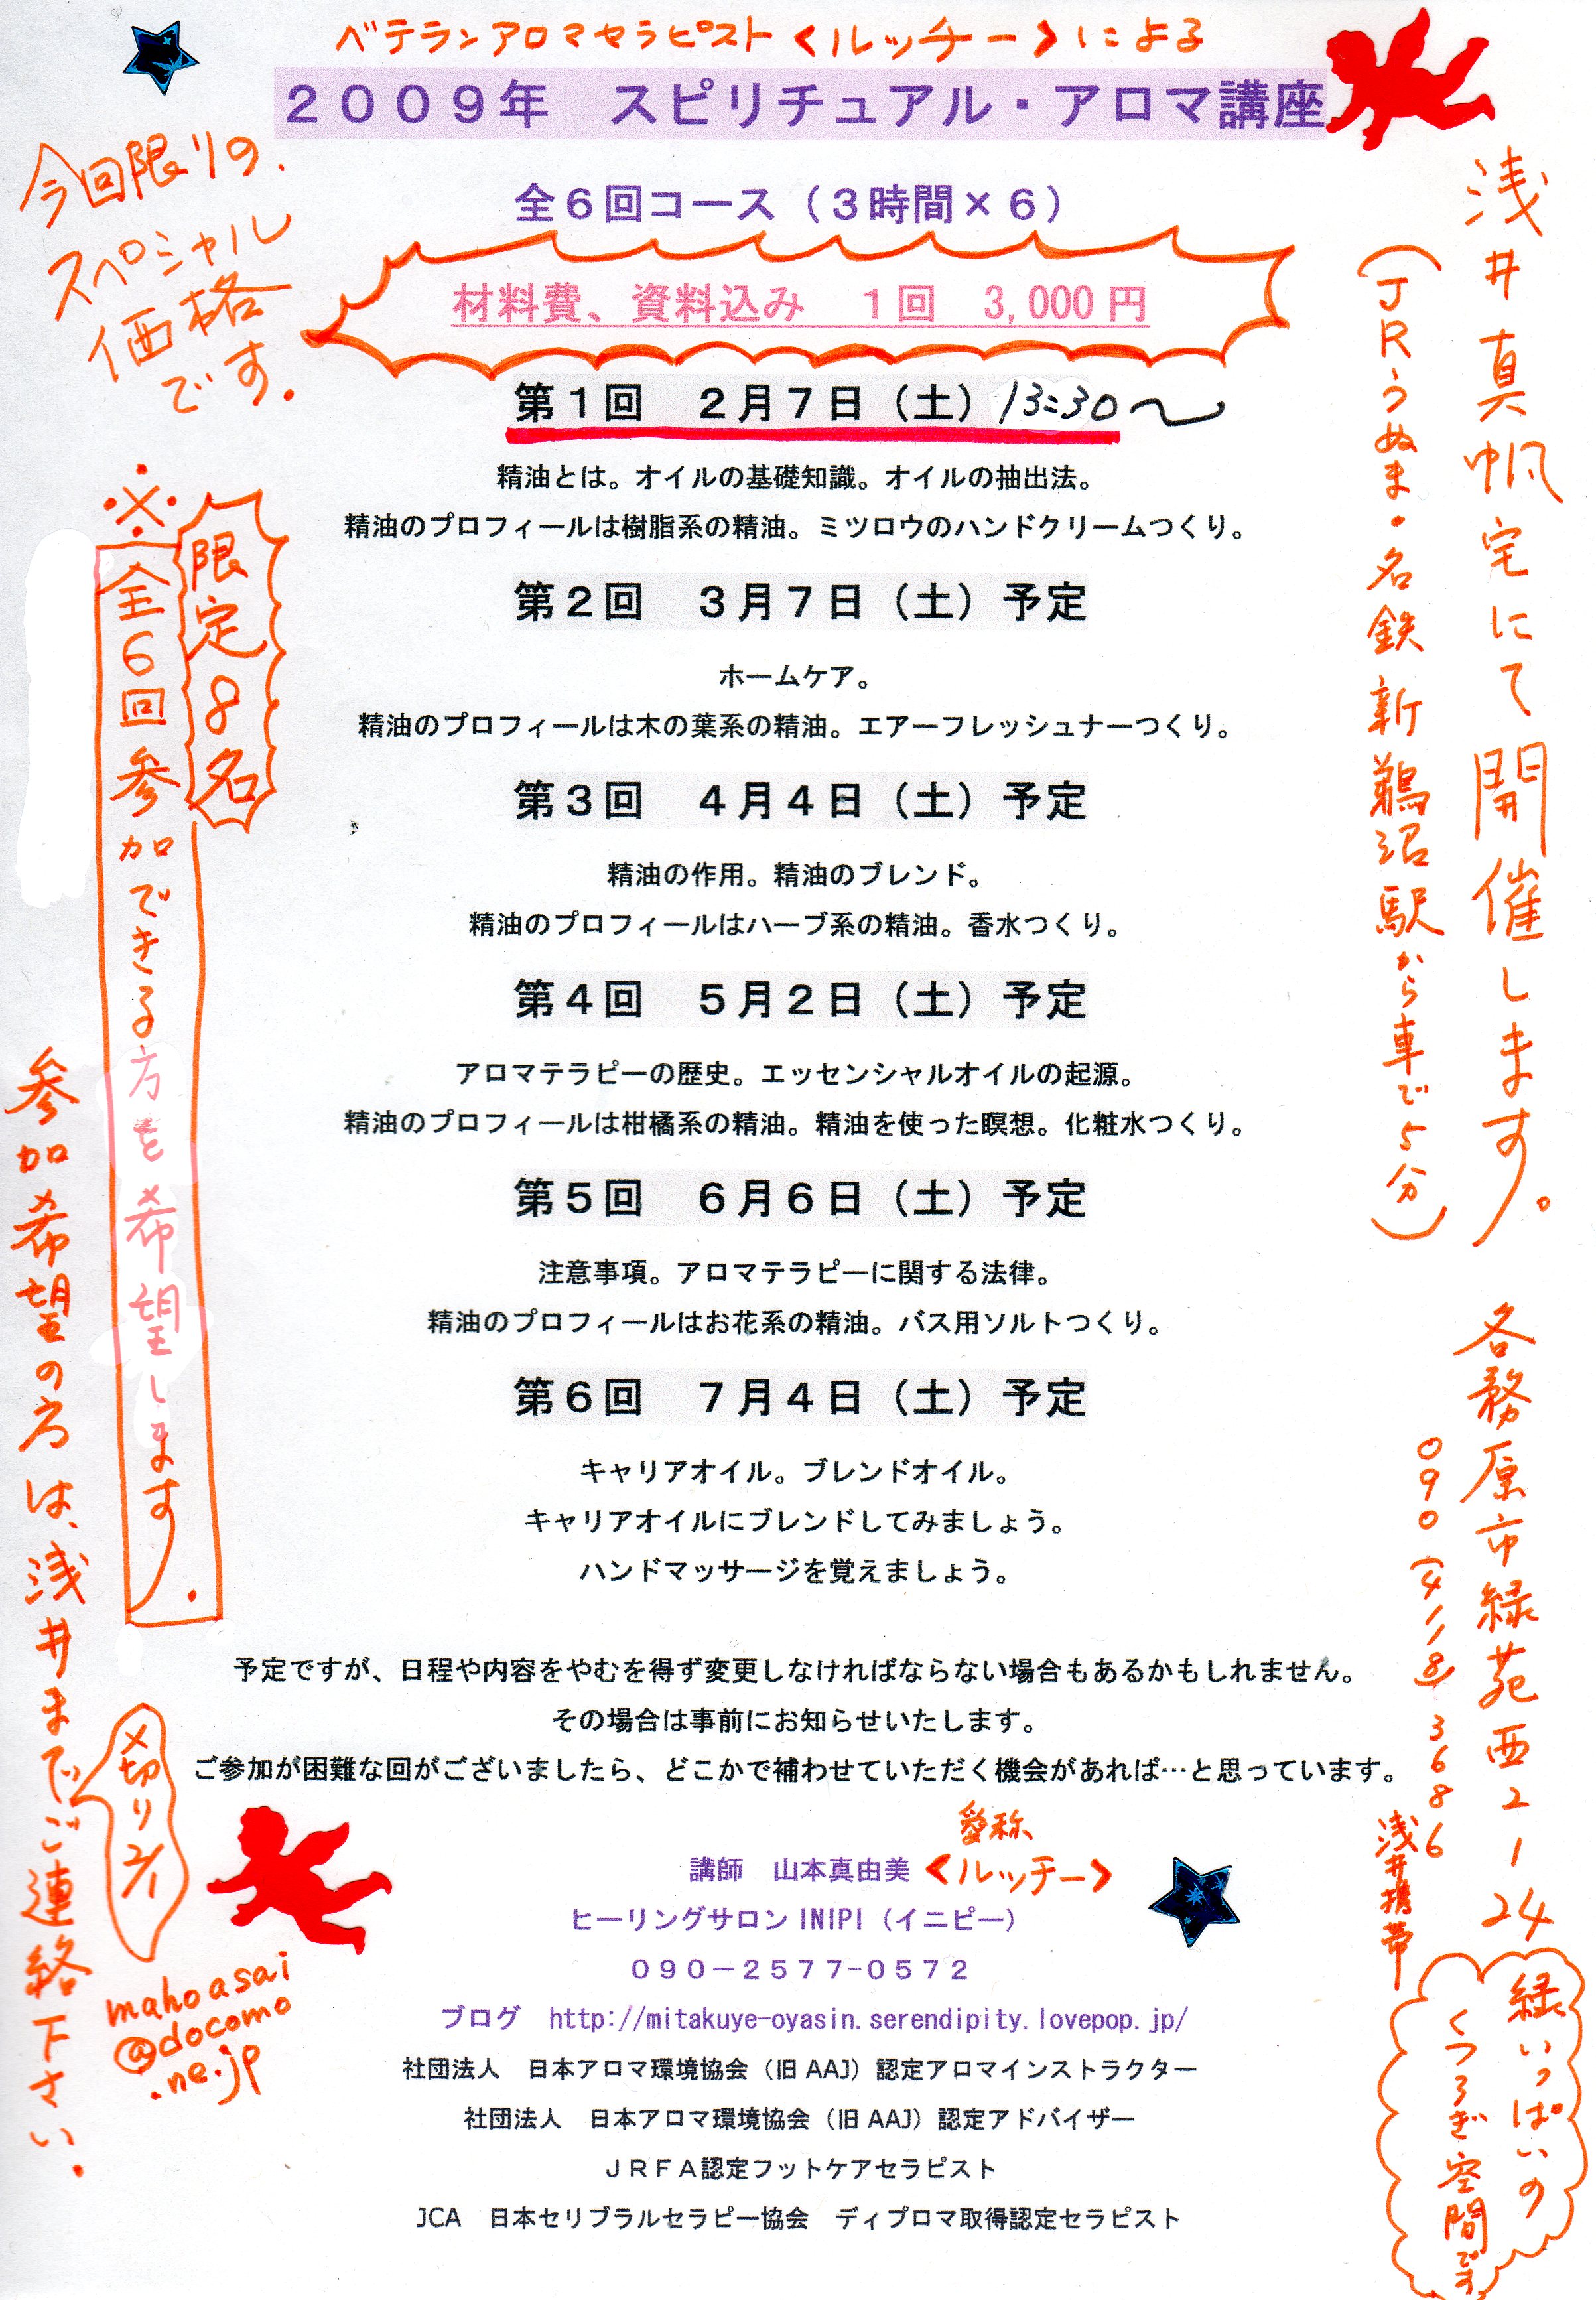 ベテランアロマセラピスト<ルッチー>による
２００９年　スピリチュアル・アロマ講座
全６回コース（３時間×６）
今回限りの、
スペシャル
価格
です.
材料費、資料込み　１回　3,000円
第１回　２月７日（土）13:30～
精油とは。オイルの基礎知識。オイルの抽出法。
精油のプロフィールは樹脂系の精油。ミツロウのハンドクリームつくり。
第２回　３月７日（土）予定
ホームケア。
精油のプロフィールは木の葉系の精油。エアーフレッシュナーつくり。
第３回　４月４日（土）予定
精油の作用。精油のブレンド。
精油のプロフィールはハーブ系の精油。香水つくり。
第４回　５月２日（土）予定
アロマテラピーの歴史。エッセンシャルオイルの起源。
精油のプロフィールは柑橘系の精油。精油を使った瞑想。化粧水つくり。
第５回　６月６日（土）予定
注意事項。アロマテラピーに関する法律。
精油のプロフィールはお花系の精油。バス用ソルトつくり。
第６回　７月４日（土）予定
キャリアオイル。ブレンドオイル。
キャリアオイルにブレンドしてみましょう。
ハンドマッサージを覚えましょう。
予定ですが、日程や内容をやむを得ず変更しなければならない場合もあるかもしれません。
その場合は事前にお知らせいたします。
ご参加が困難な回がございましたら、どこかで補わせていただく機会があれば…と思っています。
愛称、
講師　山本真由美<ルッチー>
ヒーリングサロン INIPI（イニピー）
０９０－２５７７-０５７２
ブログ　http://mitakuye-oyasin.serendipity.lovepop.jp/
社団法人　日本アロマ環境協会（旧 AAJ）認定アロマインストラクター
社団法人　日本アロマ環境協会（旧 AAJ）認定アドバイザー
ＪＲＦＡ認定フットケアセラピスト
JCA　日本セリブラルセラピー協会　ディプロマ取得認定セラピスト
浅井真帆宅にて開催します。
（JRうぬま・名鉄新鵜沼駅から車で5分）
各務原市緑苑西2-124
090（4118）3686
浅井携帯
緑いっぱいの
くつろぎ空間です
※限定8名
全6回参加できる方を希望します.
参加希望の方は、浅井までご連絡下さい.
〆切り2/1
mahoasai
@docomo
.ne.jp